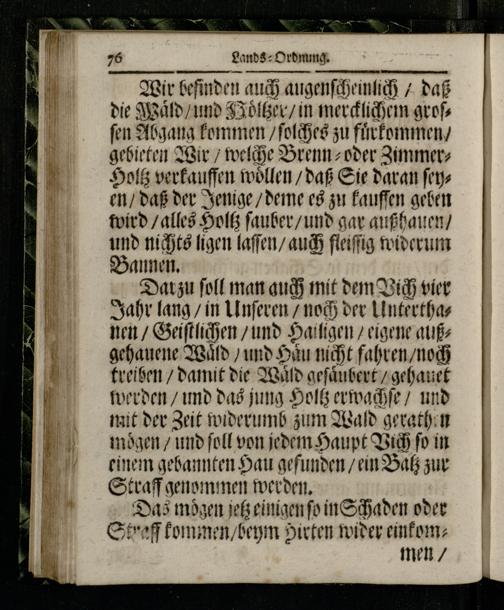 76 Lands-Ordnung.
Wir befinden auch augenscheinlich / daß
die Wäld / und Höltzer / in mercklichem gros-
sen Abgang kommen / solches zu fürkommen /
gebieten Wir / welche Brenn- oder Zimmer-
Holtz verkauffen wöllen / daß Sie daran sey-
en / daß der Jenige / deme es zu kauffen geben
wird / alles Holtz sauber / und gar außhauen /
und nichts ligen lassen / auch fleissig widerum
Bannen.
Darzu soll man auch mit dem Vich vier
Jahr lang / in Unseren / noch der Unterthа-
nen / Geistlichen / und Hailigen / eigene auß-
gehauene Wäld / und Häu nicht fahren / noch
treiben / damit die Wäld gesäubert / gehauet
werden / und das jung Holtz erwachse / und
mit der Zeit widerumb zum Wald gerathen
mögen / und soll von jedem Haupt Vich so in
einem gebannten Hau gefunden / ein Batz zur
Straff genommen werden.
Das mögen jetz einigen so in Schaden oder
Straff kommen / beym Hirten wider einkom-
men /